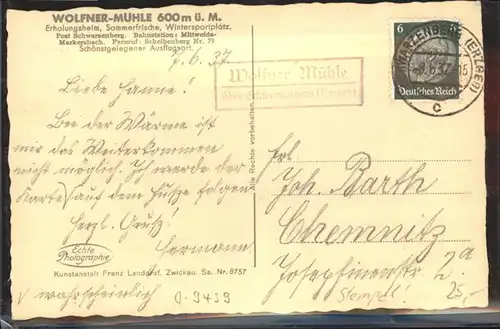 WOLFNER-MÜHLE 600 m ü. M.
Erholungsheim, Sommerfrische, Wintersportplatz,
Post Schwarzenberg. Bahnstation: Mittweida-
Markersbach. Fernruf: Scheibenberg Nr. 79
Schönstgelegener Ausflugsort.
7.6.37
Liebe Hanne!
Bei der Wärme ist
mir das Weiterkommen
nicht möglich. Ich werde der
Karte √ auf dem Fuße folgen
Herzl. Gruß!
Hermann
Echte
Photographie
Kunstanstalt Franz Landgraf, Zwickau. Sa. Nr. 8757
√ wahrscheinlich
0-9439
Alle Rechte vorbehalten
Wolfner Mühle
über Schwarzenberg (Erzgeb)
6
Deutsches Reich
SCHWARZENBERG (ERZGEB)
6.37
15
c
Joh. Barth
Chemnitz
Josephinenstr. 2a
Stempel!
25,-